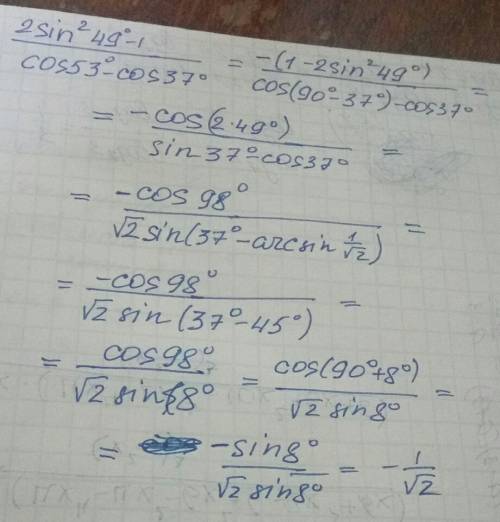 (2sin²49°-1)/(cos53°-cos37°) = (-(1-2sin²49°))/(cos(90°-37°)-cos37°) =
= (-cos(2·49°))/(sin37°-cos37°) =
= (-cos98°)/(√2sin(37°-arcsin 1/√2)) =
= (-cos98°)/(√2sin(37°-45°)) =
= (cos98°)/(√2sin8°) = (cos(90°+8°))/(√2sin8°) =
= (-sin8°)/(√2sin8°) = -1/√2